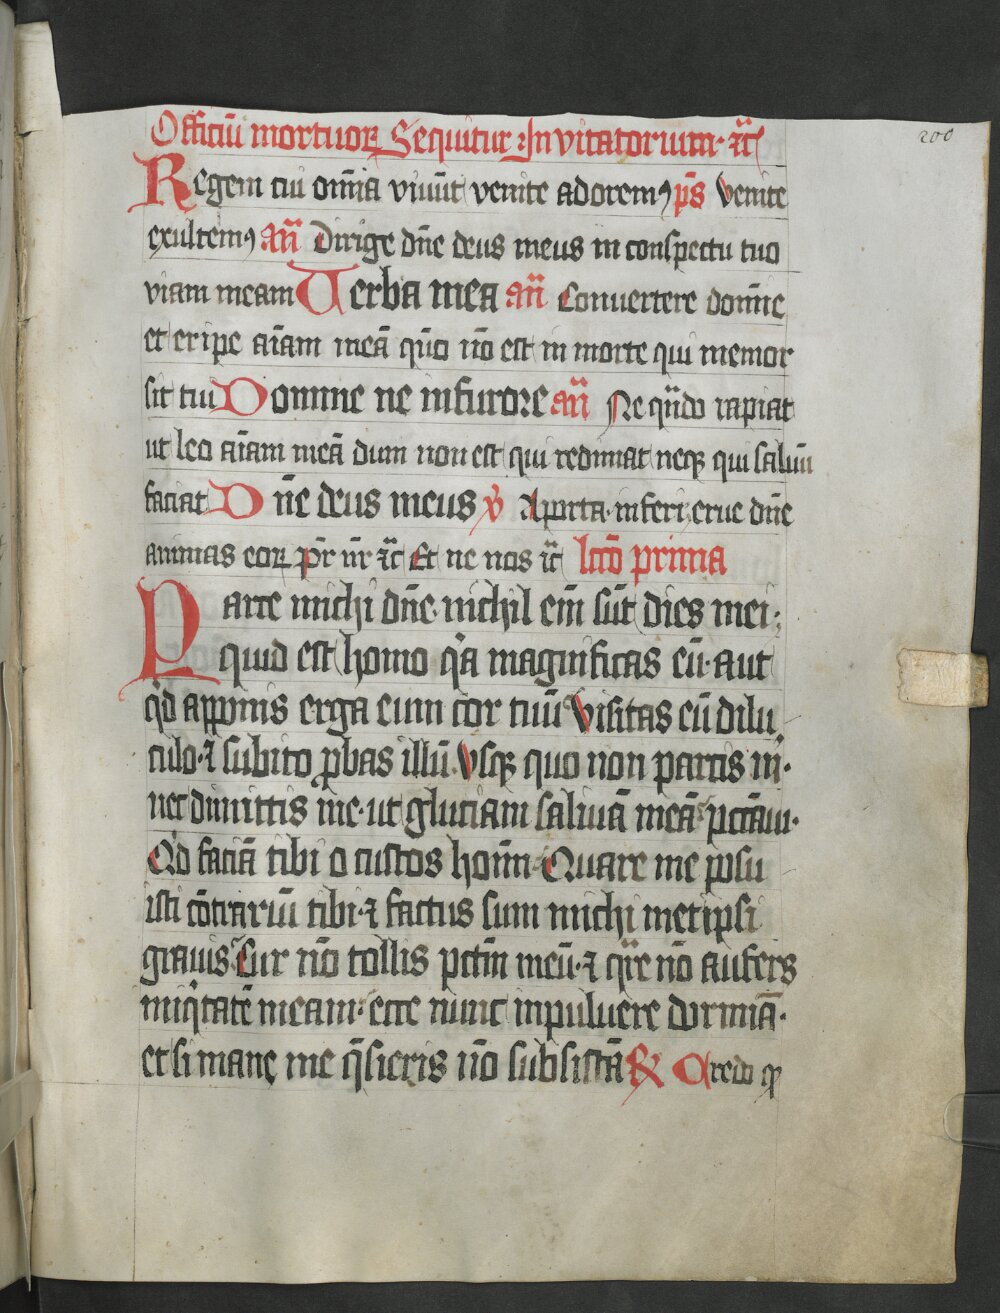 200
Officiū mortuoꝝ Sequitur Inuitatorium · ⁊c̄
Regem cui om̄ia viuūt venite adoremꝰ p̄s venite
exultemꝰ an̄ Dirige dn̄e deus meus in conspectu tuo
viam meam Uerba mea an̄ Conuertere domīe
et eripe aīam meā qm̄o nō est in morte qui memor
sit tui Domine ne in furore an̄ Ne qn̄do rapiat
ut leo aīam meā dum non est qui redimat neqꝫ qui saluū
faciat Dn̄e deus meus v̄ A porta inferi erue dn̄e
animas eoꝝ pr̄ nr̄ ⁊c̄ Et ne nos ⁊c̄ lcō prima
Parce michi dn̄e nichil em̄ sūt dies mei ;
Quid est homo q̄a magnificas eū · aut
qd̄ apponis erga eum cor tuū visitas eū dilu
culo · ⁊ subito ꝓbas illū Usqꝫ quo non parcis m̄ ·
nec dimittis me · ut gluciam saliuā meā pctāui ·
Qd̄ faciā tibi o custos homn̄ Quare me posu
isti cōtrariū tibi · ⁊ factus sum michi metipsi
grauis Cur nō tollis pctm̄ meū · ⁊ qr̄e nō aufers
iniqͥtatē meam : ecce nunc in puluere dormiā ·
et si mane me q̄sieris nō subsistā ℟ Credo ꝙ